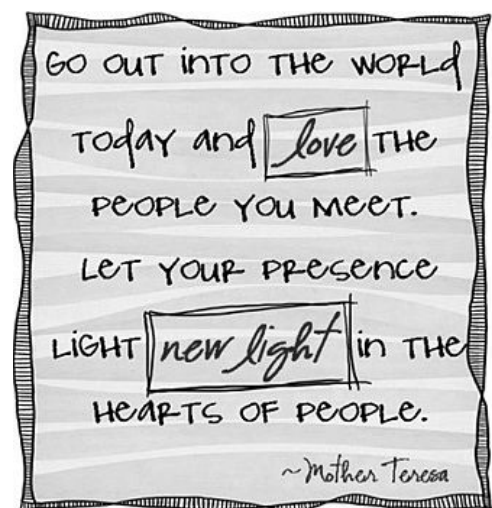 GO OUT INTO THE WORLD
TODAY AND love THE
PEOPLE YOU MEET.
LET YOUR PRESENCE
LIGHT new light IN THE
HEARTS OF PEOPLE.
~Mother Teresa